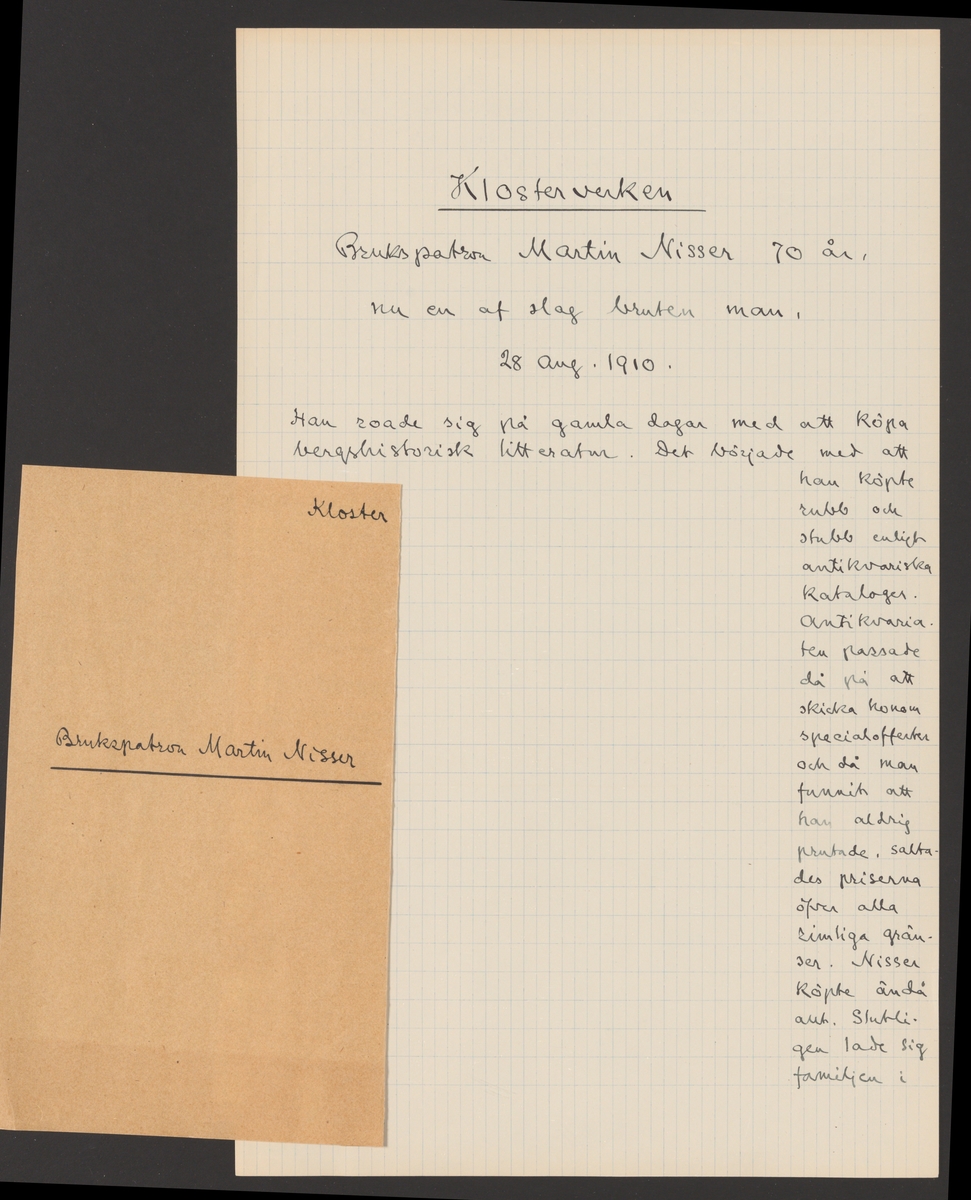 Klosterverken
Brukspatron Martin Nisser 70 år,
nu en af slag bruten man,
28 Aug. 1910.
Han roade sig på gamla dagar med att köpa
bergshistorisk litteratur. Det började med att
han köpte
rubb och
stubb enligt
antikvariska
kataloger.
Antikvaria-
ten passade
då på att
skicka honom
specialofferter
och då man
funnit att
han aldrig
prutade, salta-
des priserna
öfver alla
rimliga grän-
ser. Nisser
köpte ändå
allt. Slutli-
gen lade sig
familjen i
Kloster
Brukspatron Martin Nisser